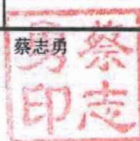 蔡志勇
蔡志勇印